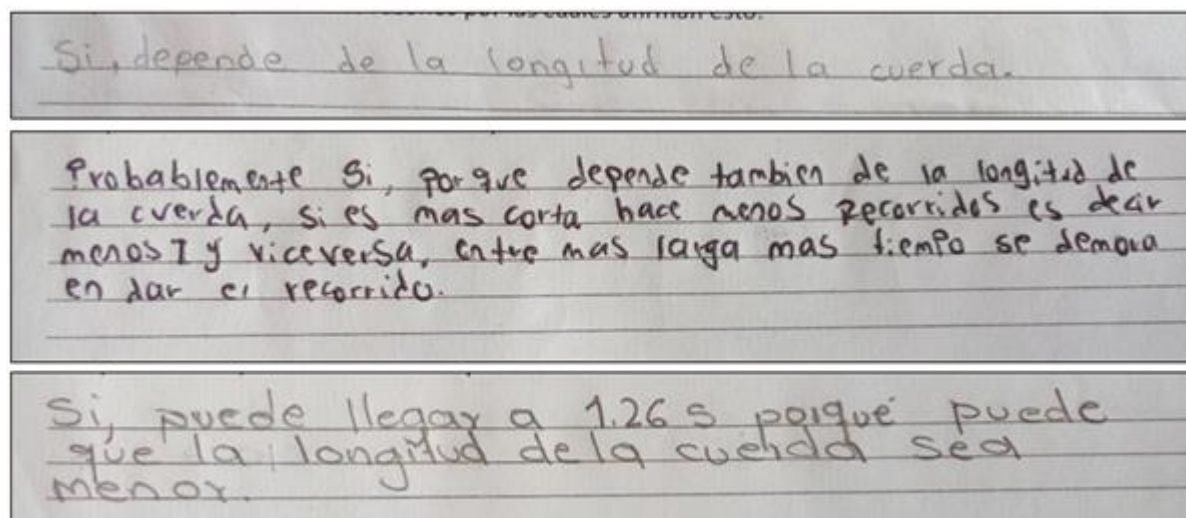 Si, depende de la longitud de la cuerda.
Probablemente Si, porque depende tambien de la longitud de
la cuerda, si es mas corta hace menos recorridos es decir
menos T y viceversa, entre mas larga mas tiempo se demora
en dar el recorrido.
Si, puede llegar a 1.26 s porqué puede
que la longitud de la cuerda sea
menor.